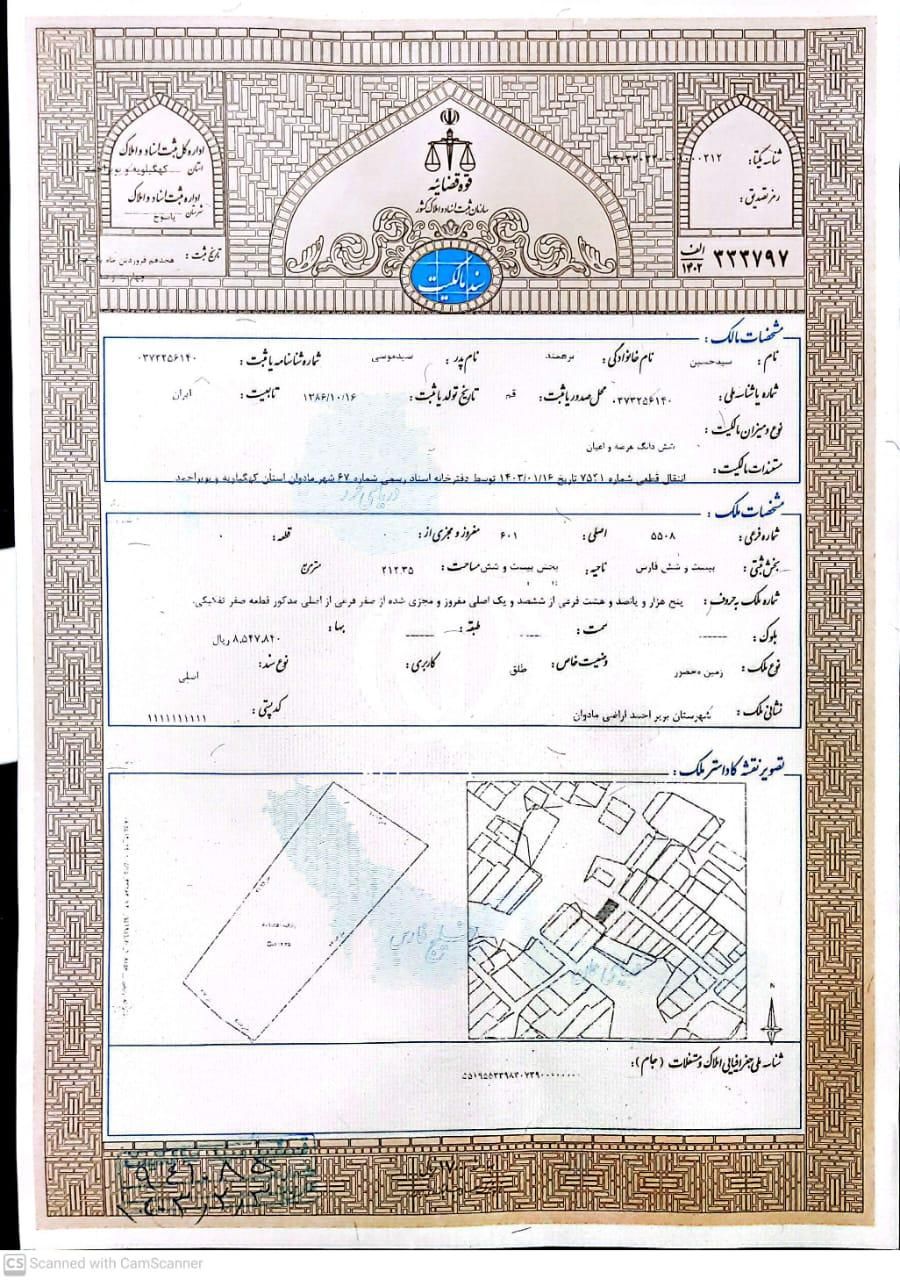 قوه قضائیه
سازمان ثبت اسناد و املاک کشور
سند مالکیت
شناسه یکتا:
رمز تصدیق:
۳۳۳۷۹۷ الف ۱۴۰۲
اداره کل ثبت اسناد و املاک
استان کهگیلویه و بویراحمد
اداره ثبت اسناد و املاک
شهرستان یاسوج
تاریخ ثبت: هجدهم فروردین ماه
مشخصات مالک:
نام: سیدحسین نام خانوادگی: برهمند نام پدر: سیدموسی شماره شناسنامه یا ثبت: ۰۳۷۳۲۵۶۱۴۰
شماره یا شناسه ملی: ۰۳۷۳۲۵۶۱۴۰ محل صدور یا ثبت: قم تاریخ تولد یا ثبت: ۱۳۸۶/۱۰/۱۶ تابعیت: ایران
نوع و میزان مالکیت:
شش دانگ عرصه و اعیان
مستندات مالکیت:
انتقال قطعی شماره ۷۵۲۱ تاریخ ۱۴۰۳/۰۱/۱۶ توسط دفترخانه اسناد رسمی شماره ۶۷ شهر مادوان استان کهگیلویه و بویراحمد
دریای خزر
مشخصات ملک:
شماره فرعی: ۵۵۰۸ اصلی: ۶۰۱ مفروز و مجزی از: ۰ قطعه: ۰
بخش ثبتی: بیست و شش فارس ناحیه: بخش بیست و شش مساحت: ۲۱۲.۳۵ مترمربع
شماره ملک به حروف: پنج هزار و پانصد و هشت فرعی از ششصد و یک اصلی مفروز و مجزی شده از صفر فرعی از اصلی مذکور قطعه صفر تفکیکی.
بلوک: ـــــ سمت: ـــــ طبقه: ـــــ بها: ۸,۵۴۷,۸۴۰ ریال
نوع ملک: زمین محصور وضعیت خاص: طلق کاربری: نوع سند: اصلی
نشانی ملک: شهرستان بویر احمد اراضی مادوان کد پستی: ۱۱۱۱۱۱۱۱۱۱
تصویر نقشه کاداستر ملک:
خلیج فارس
دریای عمان
N
شناسه ملی جغرافیایی املاک و مستغلات (جام):
CS Scanned with CamScanner